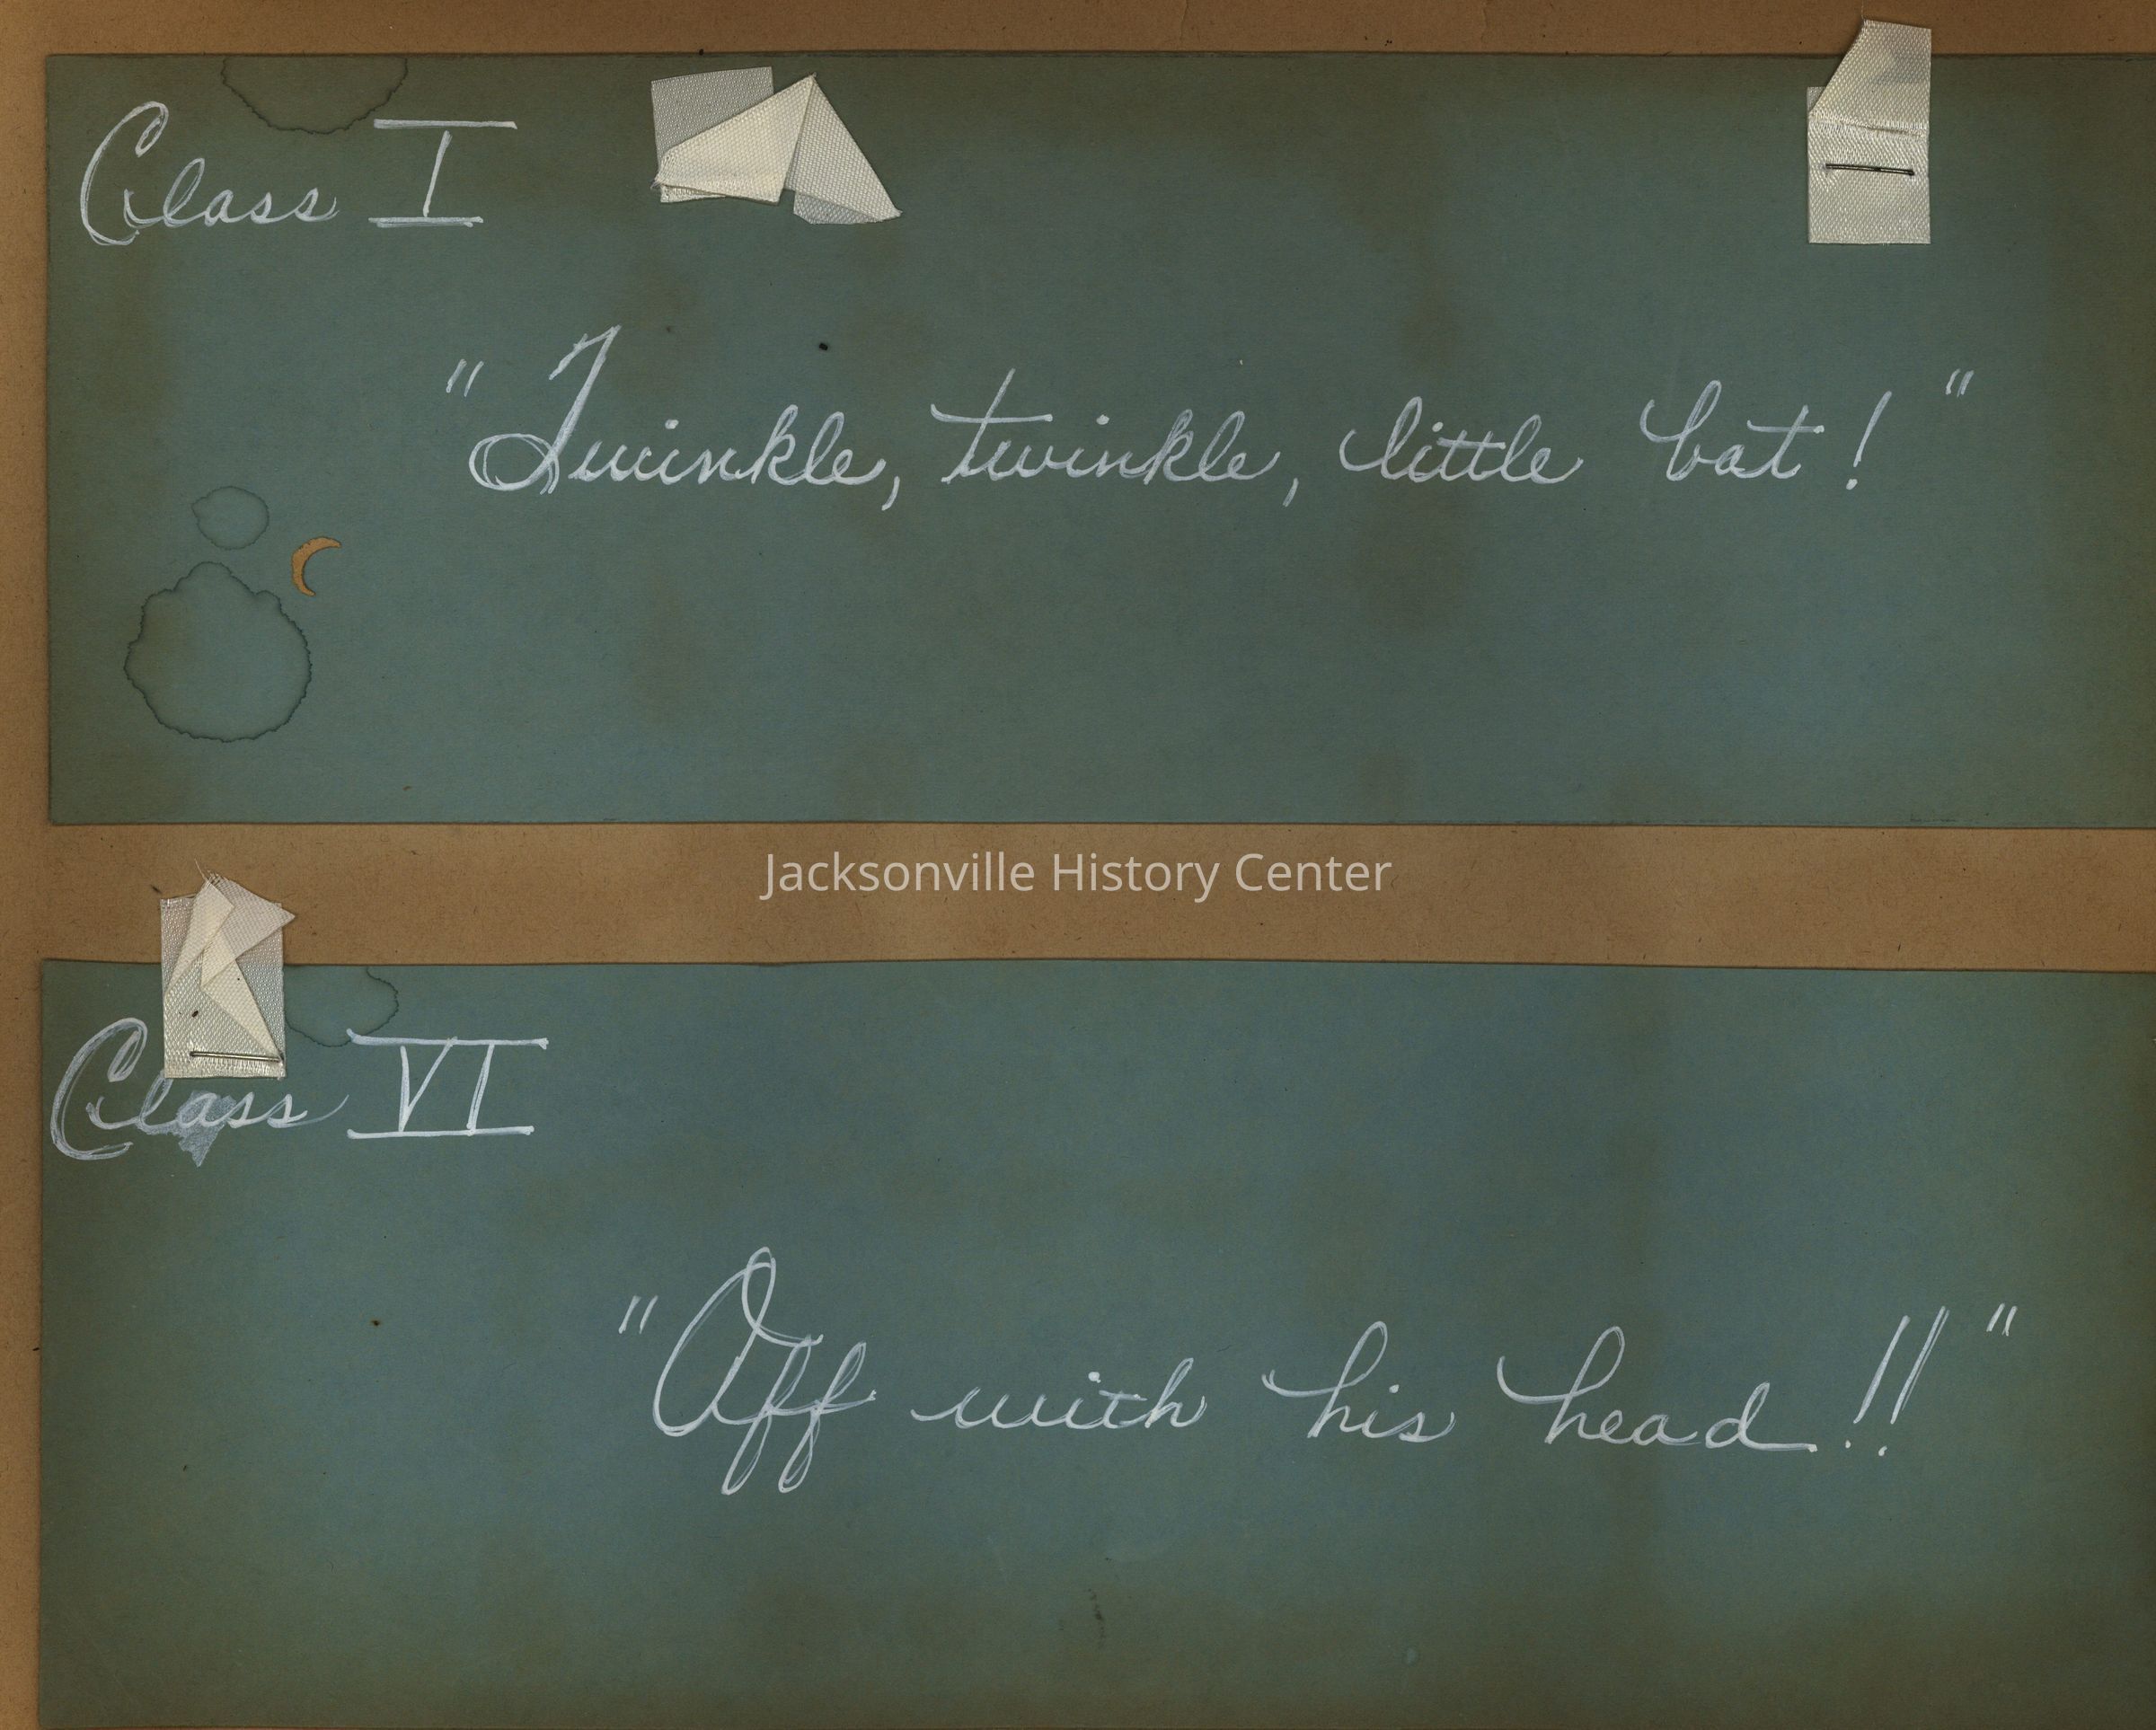 Class I
"Twinkle, twinkle, little bat!"
Jacksonville History Center
Class VI
"Off with his head!!"